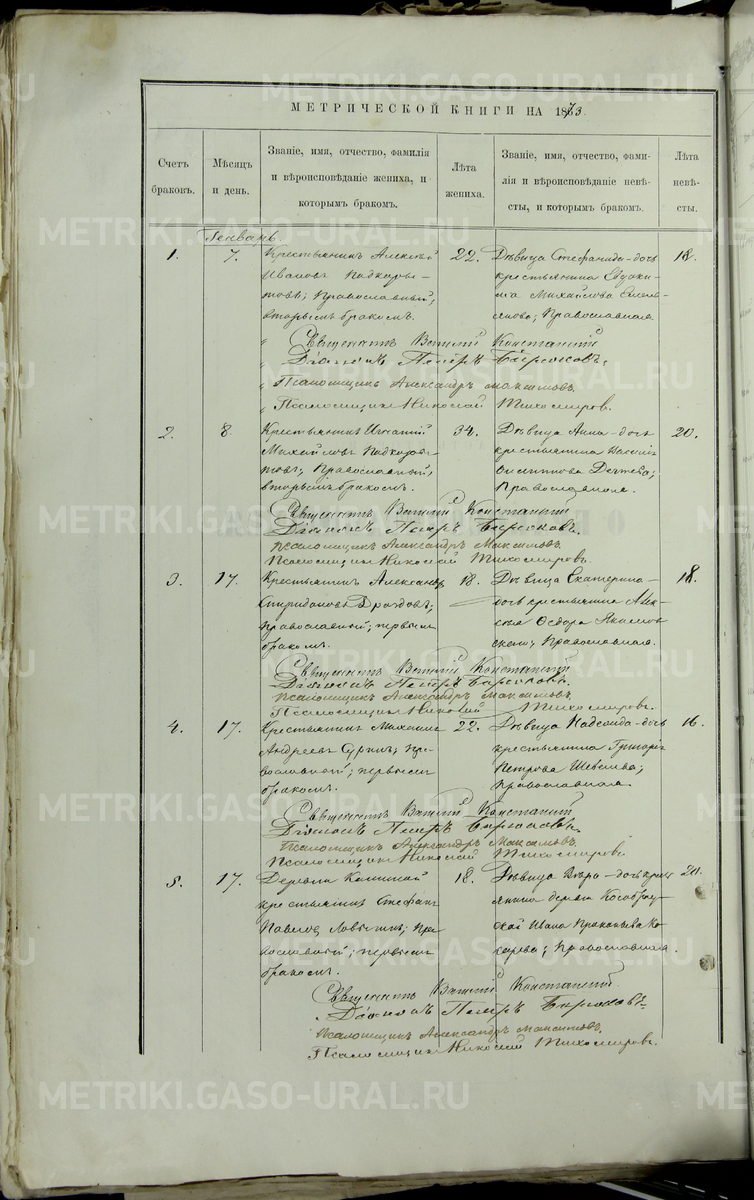 МЕТРИЧЕСКОЙ КНИГИ НА 1873.
Счетъ браковъ.
Мѣсяцъ и день.
Званіе, имя, отчество, фамилія
и вѣроисповѣданіе жениха, и
которымъ бракомъ.
Лѣта жениха.
Званіе, имя, отчество, фами-
лія и вѣроисповѣданіе невѣ-
сты, и которымъ бракомъ.
Лѣта невѣ-
сты.
Генварь.
1. 7. Крестьянинъ Алексѣй 22. Дѣвица Стефанида-дочь 18.
Ивановъ Подкоры- крестьянина Евдоки-
товъ; Православный; ма Михайлова
вторымъ бракомъ. Православная
Священникъ Констанскій
Діаконъ Петръ Бирюковъ.
Псаломщикъ Александръ Максимовъ.
Псаломщикъ Николай Тихомировъ.
2. 8. Крестьянинъ Игнатій 34. Дѣвица Анна-дочь 20.
Михайловъ Подкоры- крестьянина
товъ; Православный;
вторымъ бракомъ. Православная.
Священникъ Констанскій
Діаконъ Петръ Бирюковъ.
Псаломщикъ Александръ Максимовъ.
Псаломщикъ Николай Тихомировъ.
3. 17. Крестьянинъ Александръ 18. Дѣвица Екатерина- 18.
Спиридоновъ Дроздовъ; дочь крестьянина
православный; первымъ Федора
бракомъ. Православная.
Священникъ Констанскій
Діаконъ Петръ Бирюковъ.
Псаломщикъ Александръ Максимовъ.
Псаломщикъ Николай Тихомировъ.
4. 17. Крестьянинъ Михаилъ 22. Дѣвица Надежда-дочь 16.
Андреевъ Пра- крестьянина Григорія
вославный; первымъ Петрова Шевелева;
бракомъ. Православная.
Священникъ Констанскій
Діаконъ Петръ Бирюковъ.
Псаломщикъ Александръ Максимовъ.
Псаломщикъ Николай Тихомировъ.
5. 17. Деревни 18. Дѣвица Вѣра-дочь кресть- 20.
крестьянинъ Стефанъ янина деревни
Павловъ Пра- Ивана Прокопьева Ко-
вославный; первымъ Православная.
бракомъ.
Священникъ Констанскій
Діаконъ Петръ Бирюковъ.
Псаломщикъ Александръ Максимовъ.
Псаломщикъ Николай Тихомировъ.
METRIKI.GASO-URAL.RU